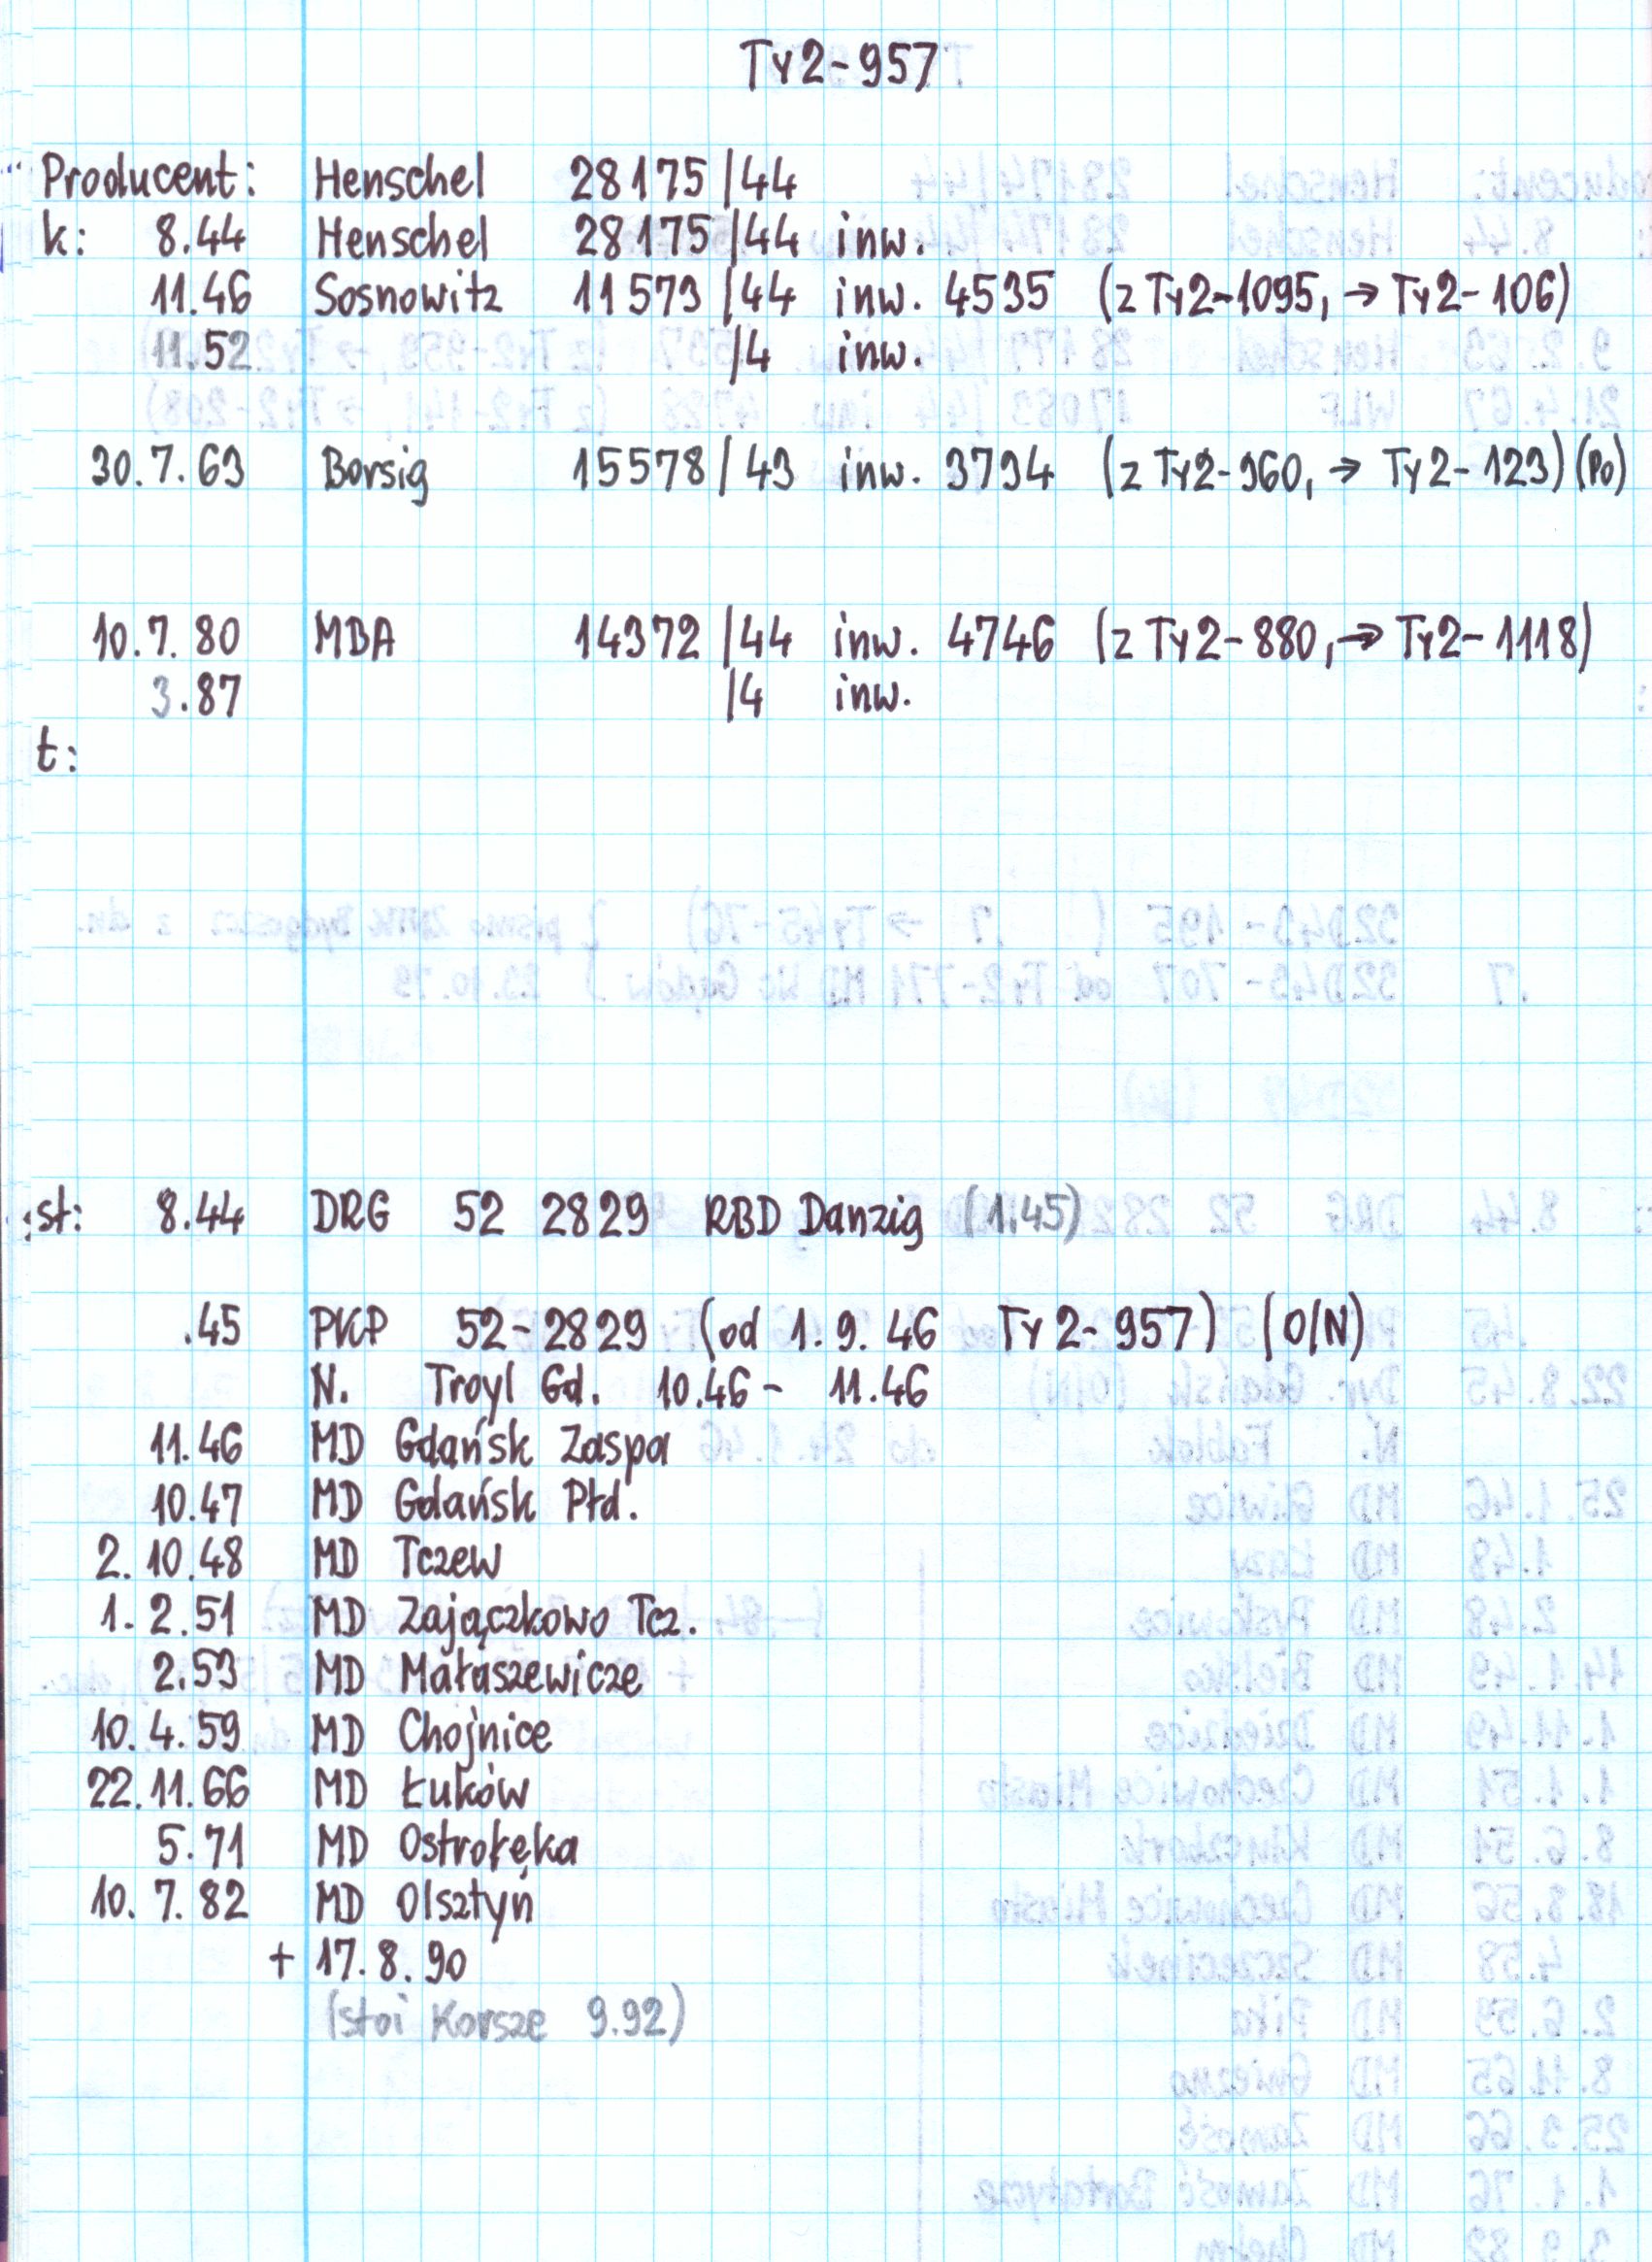 Ty2-957
Producent: Henschel 28175/44
k: 8.44 Henschel 28175/44 inw.
11.46 Sosnowitz 11573/44 inw. 4535 (z Ty2-1095, → Ty2-106)
11.52 /4 inw.
30.7.63 Borsig 15578/43 inw. 3794 (z Ty2-960, → Ty2-123) (Po)
10.7.80 MBA 14372/44 inw. 4746 (z Ty2-880, → Ty2-1118)
3.87 /4 inw.
t:
st: 8.44 DRG 52 2829 RBD Danzig (1.45)
.45 PKP 52-2829 (od 1.9.46 Ty2-957) (O/N)
N. Troyl Gd. 10.46 - 11.46
11.46 MD Gdańsk Zaspa
10.47 MD Gdańsk Płd.
2.10.48 MD Tczew
1.2.51 MD Zajączkowo Tcz.
2.53 MD Małaszewicze
10.4.59 MD Chojnice
22.11.66 MD Łuków
5.71 MD Ostrołęka
10.7.82 MD Olsztyn
+ 17.8.90
(stoi Korsze 9.92)